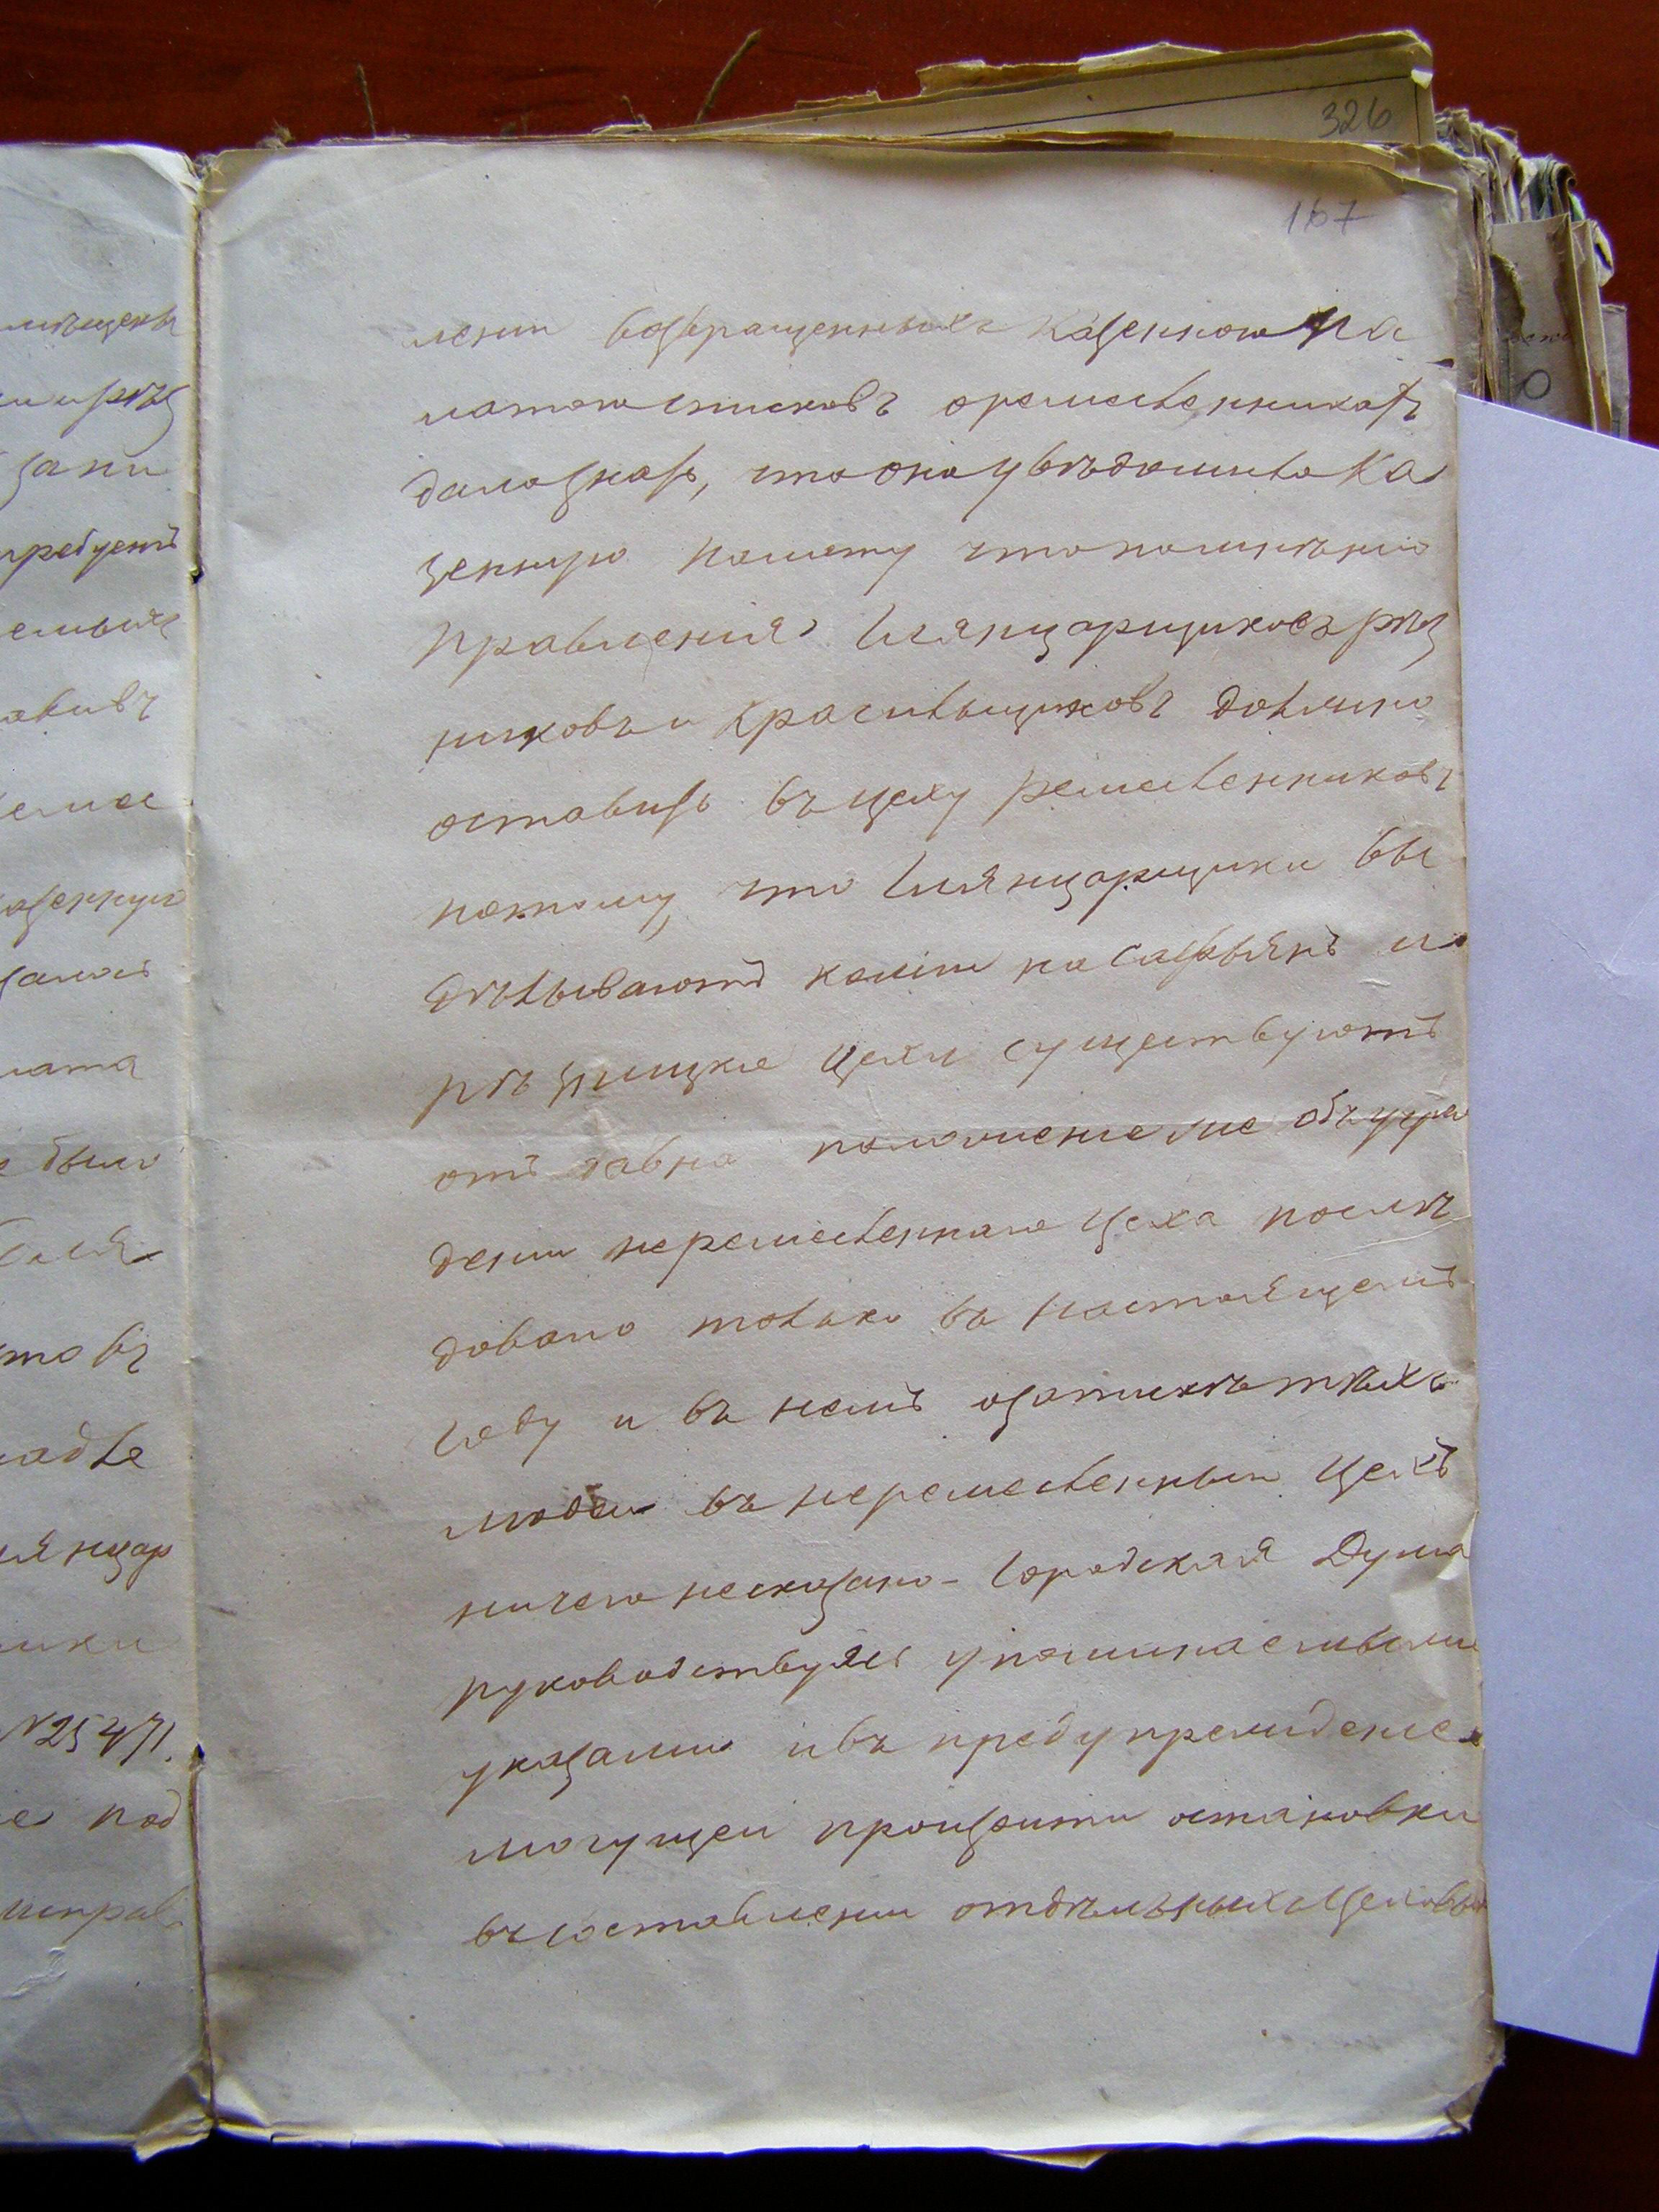 326
167
лении возвращенныхъ Казенною Па
латою списковъ оремесленникахъ
дала знать, что она увѣдомила Ка
зенную палату что по мнѣнію
Правленія Глянцарщиковъ рѣз
никовъ и Красильщиковъ должно
оставить въ цеху ремесленниковъ
потому, что Глянцарщики вы
дѣлываютъ кожи на сафьянъ и
рѣзницкіе цехи существуютъ
отъ давна положеніе же объ учре
деніи неремесленнаго Цеха послѣ
довало только въ настоящемъ
году и въ немъ
людей въ неремесленный Цехъ
ничего несказано - Городская Дума
руководствуясь упоминаемыми
указами и въ предупрежденіе
могущей произойти остановки
въ составленіи отдѣльныхъ Цеховых
мѣщенъ
рѣз
зани
требуетъ
емыхъ
авивъ
азенную
лата
е было
то въ
адле
лянцар
ики
№ 25471.
е под
исправ